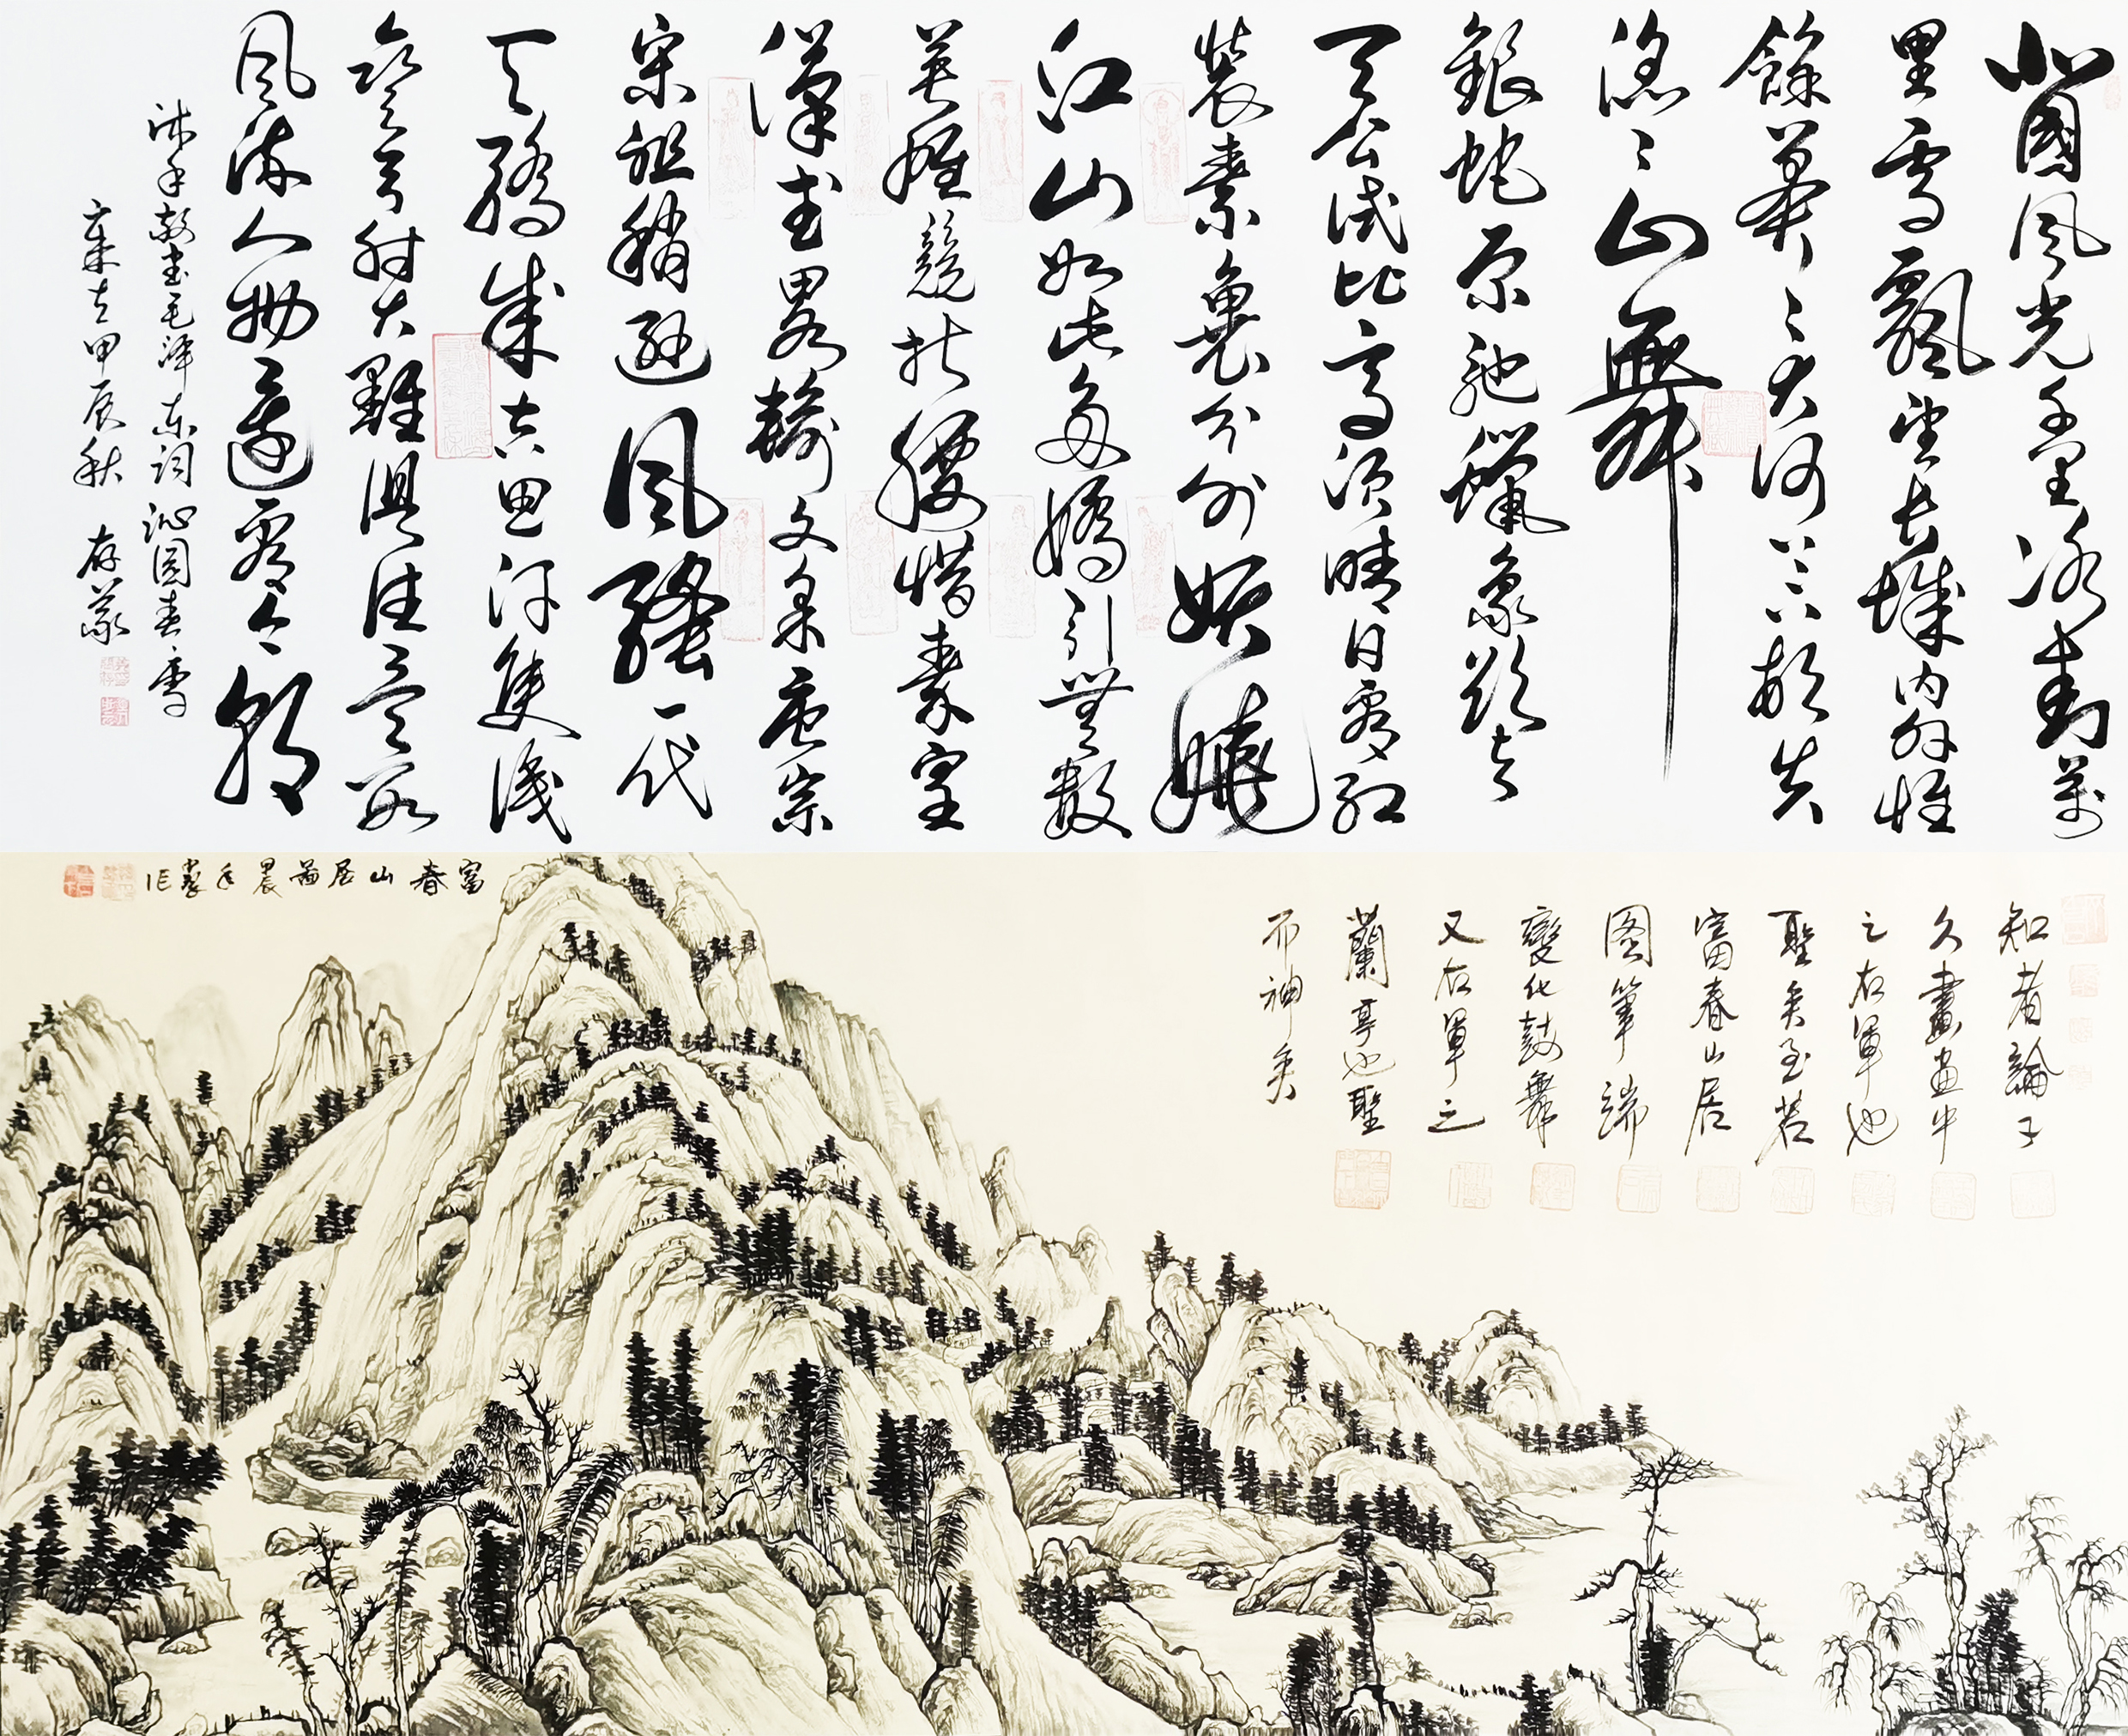 北國風光千里冰封萬
里雪飄望長城內外惟
餘莽〻大河上下頓失
滔〻山舞
銀蛇原馳蠟象欲與
天公試比高須晴日看紅
裝素裹分外妖嬈
江山如此多嬌引無數
英雄競折腰惜秦皇
漢武畧輸文采唐宗
宋祖稍遜風騷一代
天驕成吉思汗隻識
彎弓射大雕俱往矣數
風流人物還看今朝
沐手敬書毛澤東詞沁園春雪
歲在甲辰秋
富春山居啚
知者論子
久畫畫中
之右軍也
聖矣至若
富春山居
图筆端
變化鼓舞
又右軍之
蘭亭也聖
而神矣